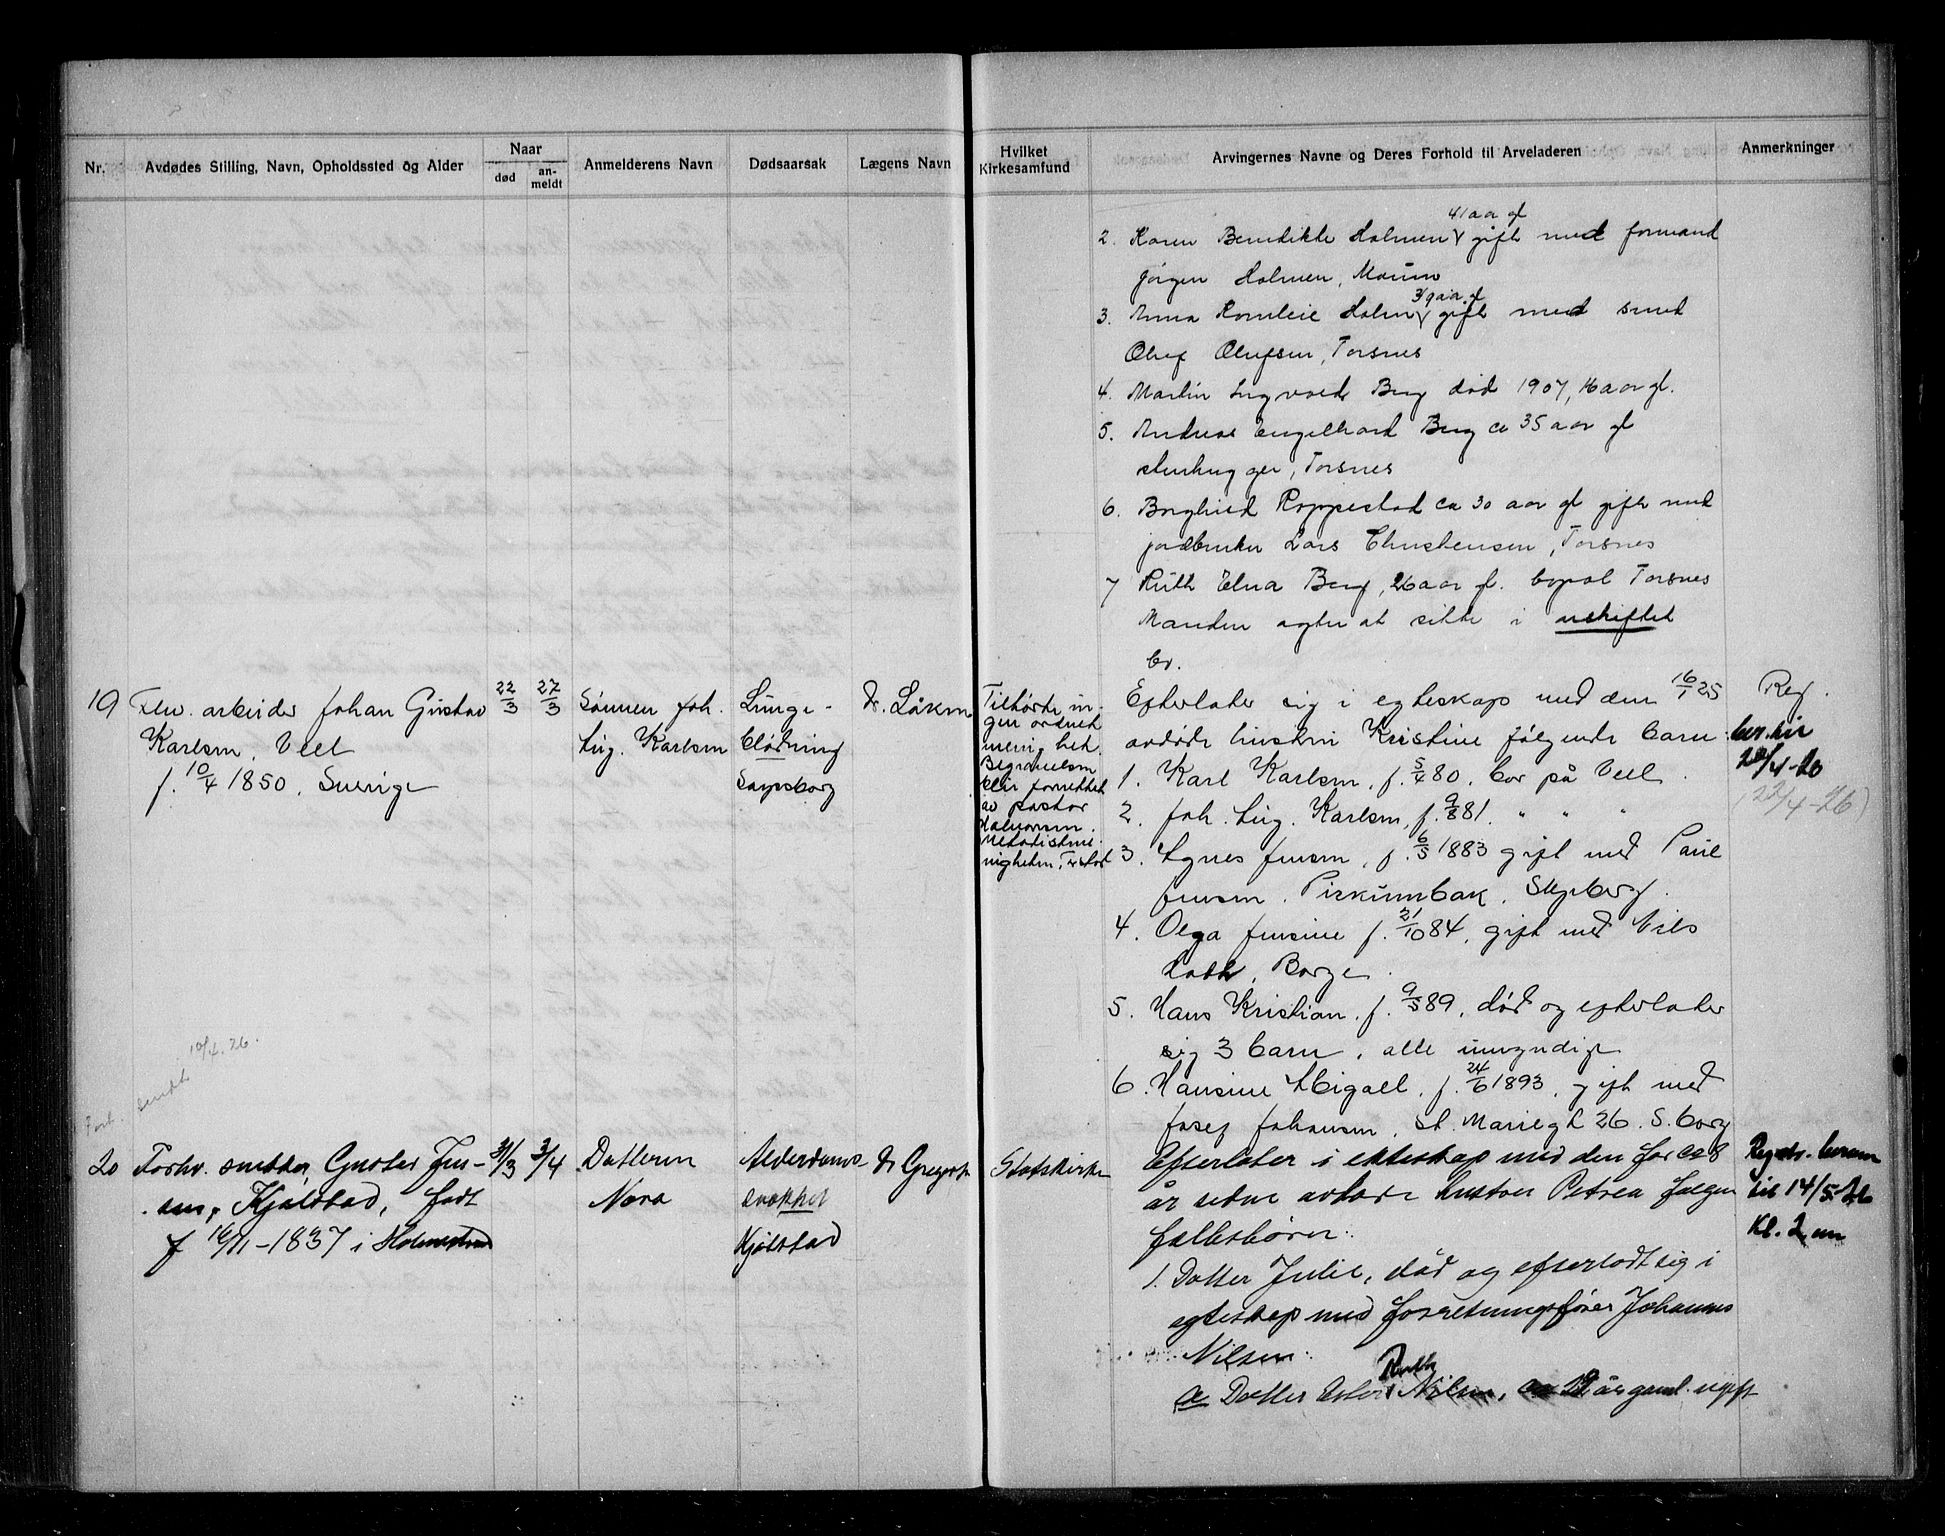 Nr.
Avdødes Stilling, Navn, Opholdssted og Alder
Naar
død
an-
meldt
Anmelderens Navn
Dødsaarsak
Lægens Navn
Hvilket
Kirkesamfund
Arvingernes Navne og Deres Forhold til Arveladeren
Anmerkninger
41 aar gl
2. Karen Benedikte Holmen gift med formand
Jørgen Holmen, Moum
39 aar gl
3. Anna Holm gift med smed
Oluf Olufsen, Torsnes
4. Martin Ingvald Berg død 1907, 16 aar gl.
5. Andreas Engelhard Berg ca 35 aar gl
stenhugger, Torsnes
6. Borghild Roppestad ca 30 aar gl gift med
jordbruker Lars Christensen, Torsnes
7 Ruth Elna Berg, 26 aar gl. bopæl Torsnes
Manden agter at sitte i uskiftet
bo.
19
arbeider Johan Gustav
Karlsen, Veel
f. 10/4 1850, Sverige
22/3
27/3
Sønnen Joh.
Lug. Karlsen
Lunge-
blødning
Sarpsborg
Dr. Låkem
Tilhørte in-
gen ordnet
menighet.
Begravelsen
blir forrettet
av pastor
Halvorsen.
Metodistme-
nigheten,
Efterlater sig i egteskap med den 16/1 25
avdøde hustru Kristine følgende barn:
1. Karl Karlsen, f. 5/4 80, bor på Veel.
2. Joh. Lug. Karlsen, f. 9/8 81. " " "
3. Agnes Jensen, f. 6/5 1883 gift med Paul
Jensen, Pirkumbak, Skjeberg.
4. Olga Jensine f. 21/10 84, gift med Nils
Borge.
5. Hans Kristian, f. 9/5 89, død og efterlater
sig 3 barn, alle umyndige
6. Hansine Abigael, f. 24/6 1893, gift med
Josef Johansen, St. Mariegt 26. S.borg
Reg.
ber. til
20/4-26
(22/4-26)
Fort. sendt 10/4.26.
20 Forhv. snekker Gustav Jen-
sen, Kjølstad, født
f 16/11-1837 i Holmestrand
31/3
3/4
Datteren
Nora
Alderdoms-
svakhet
Kjølstad
Dr Gregers.
Statskirken
Efterlater i ekteskap med den for ca 8
år siden avdøde hustru Petrea følgen
fællesbørn:
1. Datter Julie, død og efterlodt sig i
egteskap med forretningsfører Johannes
Nilsen:
Ruth
a Datter Ester Nilsen, år gaml. ugift
Registr. beram
til 14/5-26
Kl. 2 em